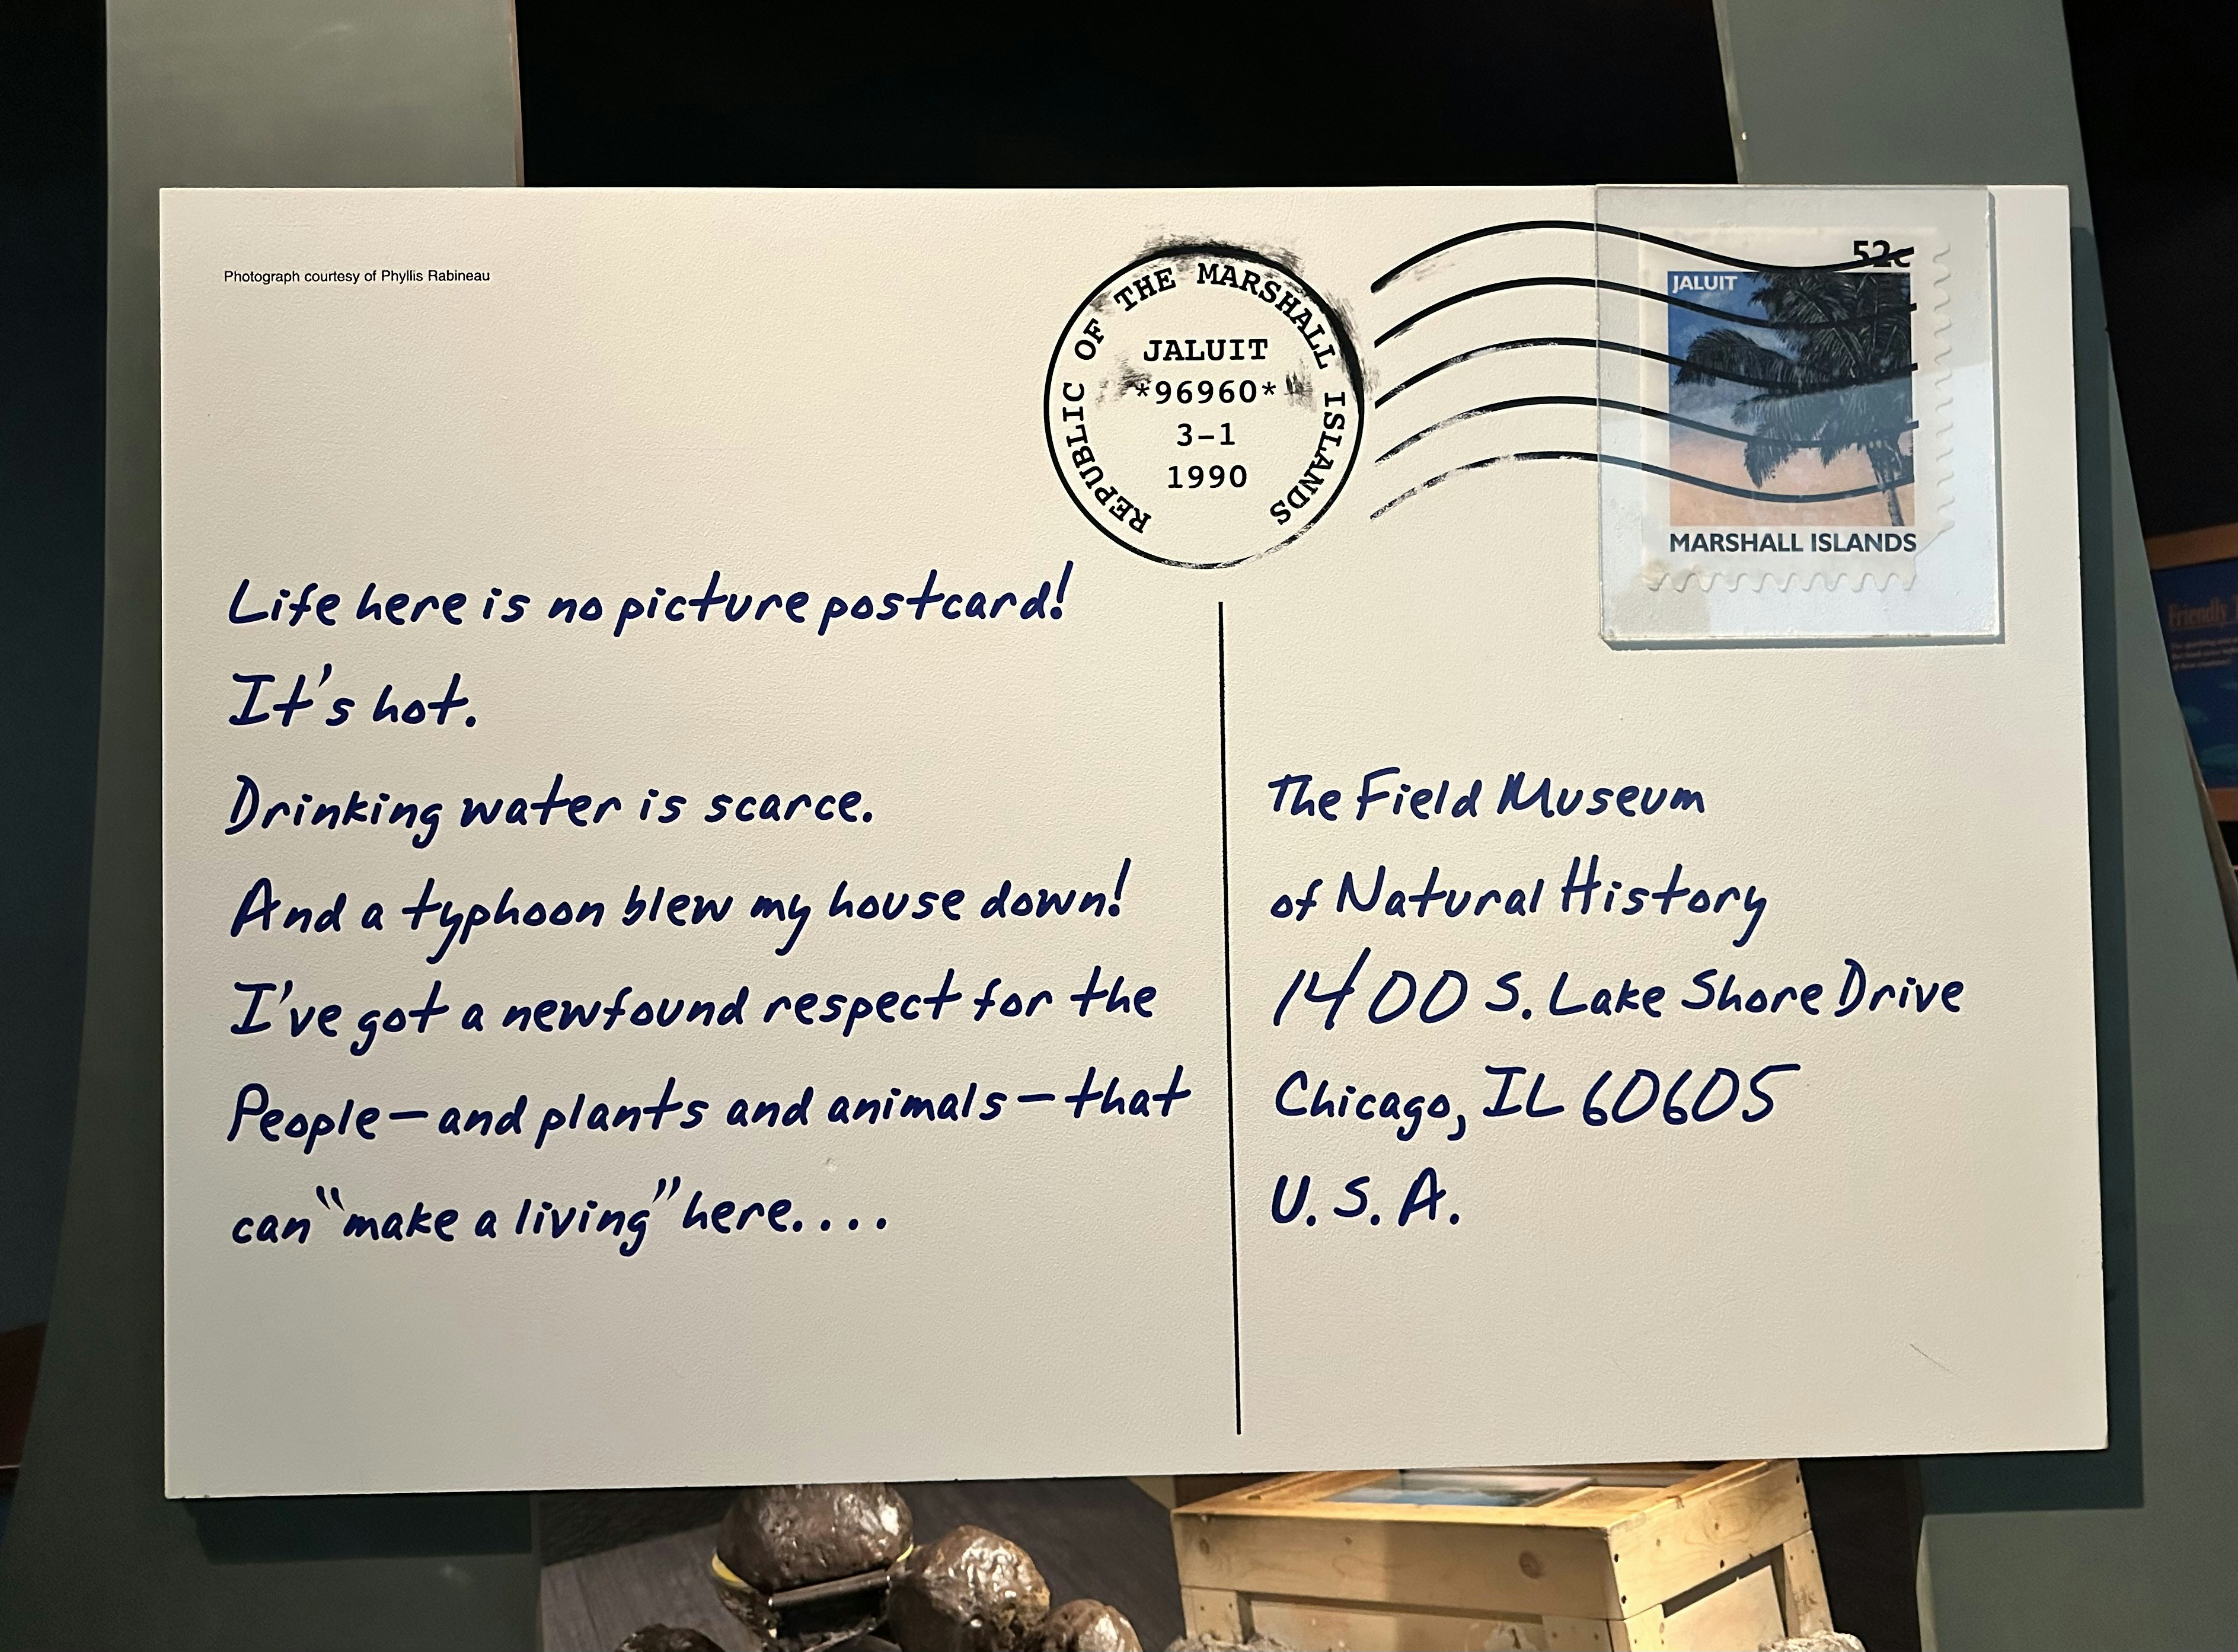 Photograph courtesy of Phyllis Rabineau
REPUBLIC OF THE MARSHALL ISLANDS
JALUIT
*96960*
3-1
1990
52c
JALUIT
MARSHALL ISLANDS
Life here is no picture postcard!
It's hot.
Drinking water is scarce.
And a typhoon blew my house down!
I've got a newfound respect for the
People—and plants and animals—that
can "make a living" here....
The Field Museum
of Natural History
1400 S. Lake Shore Drive
Chicago, IL 60605
U.S.A.
Friendly